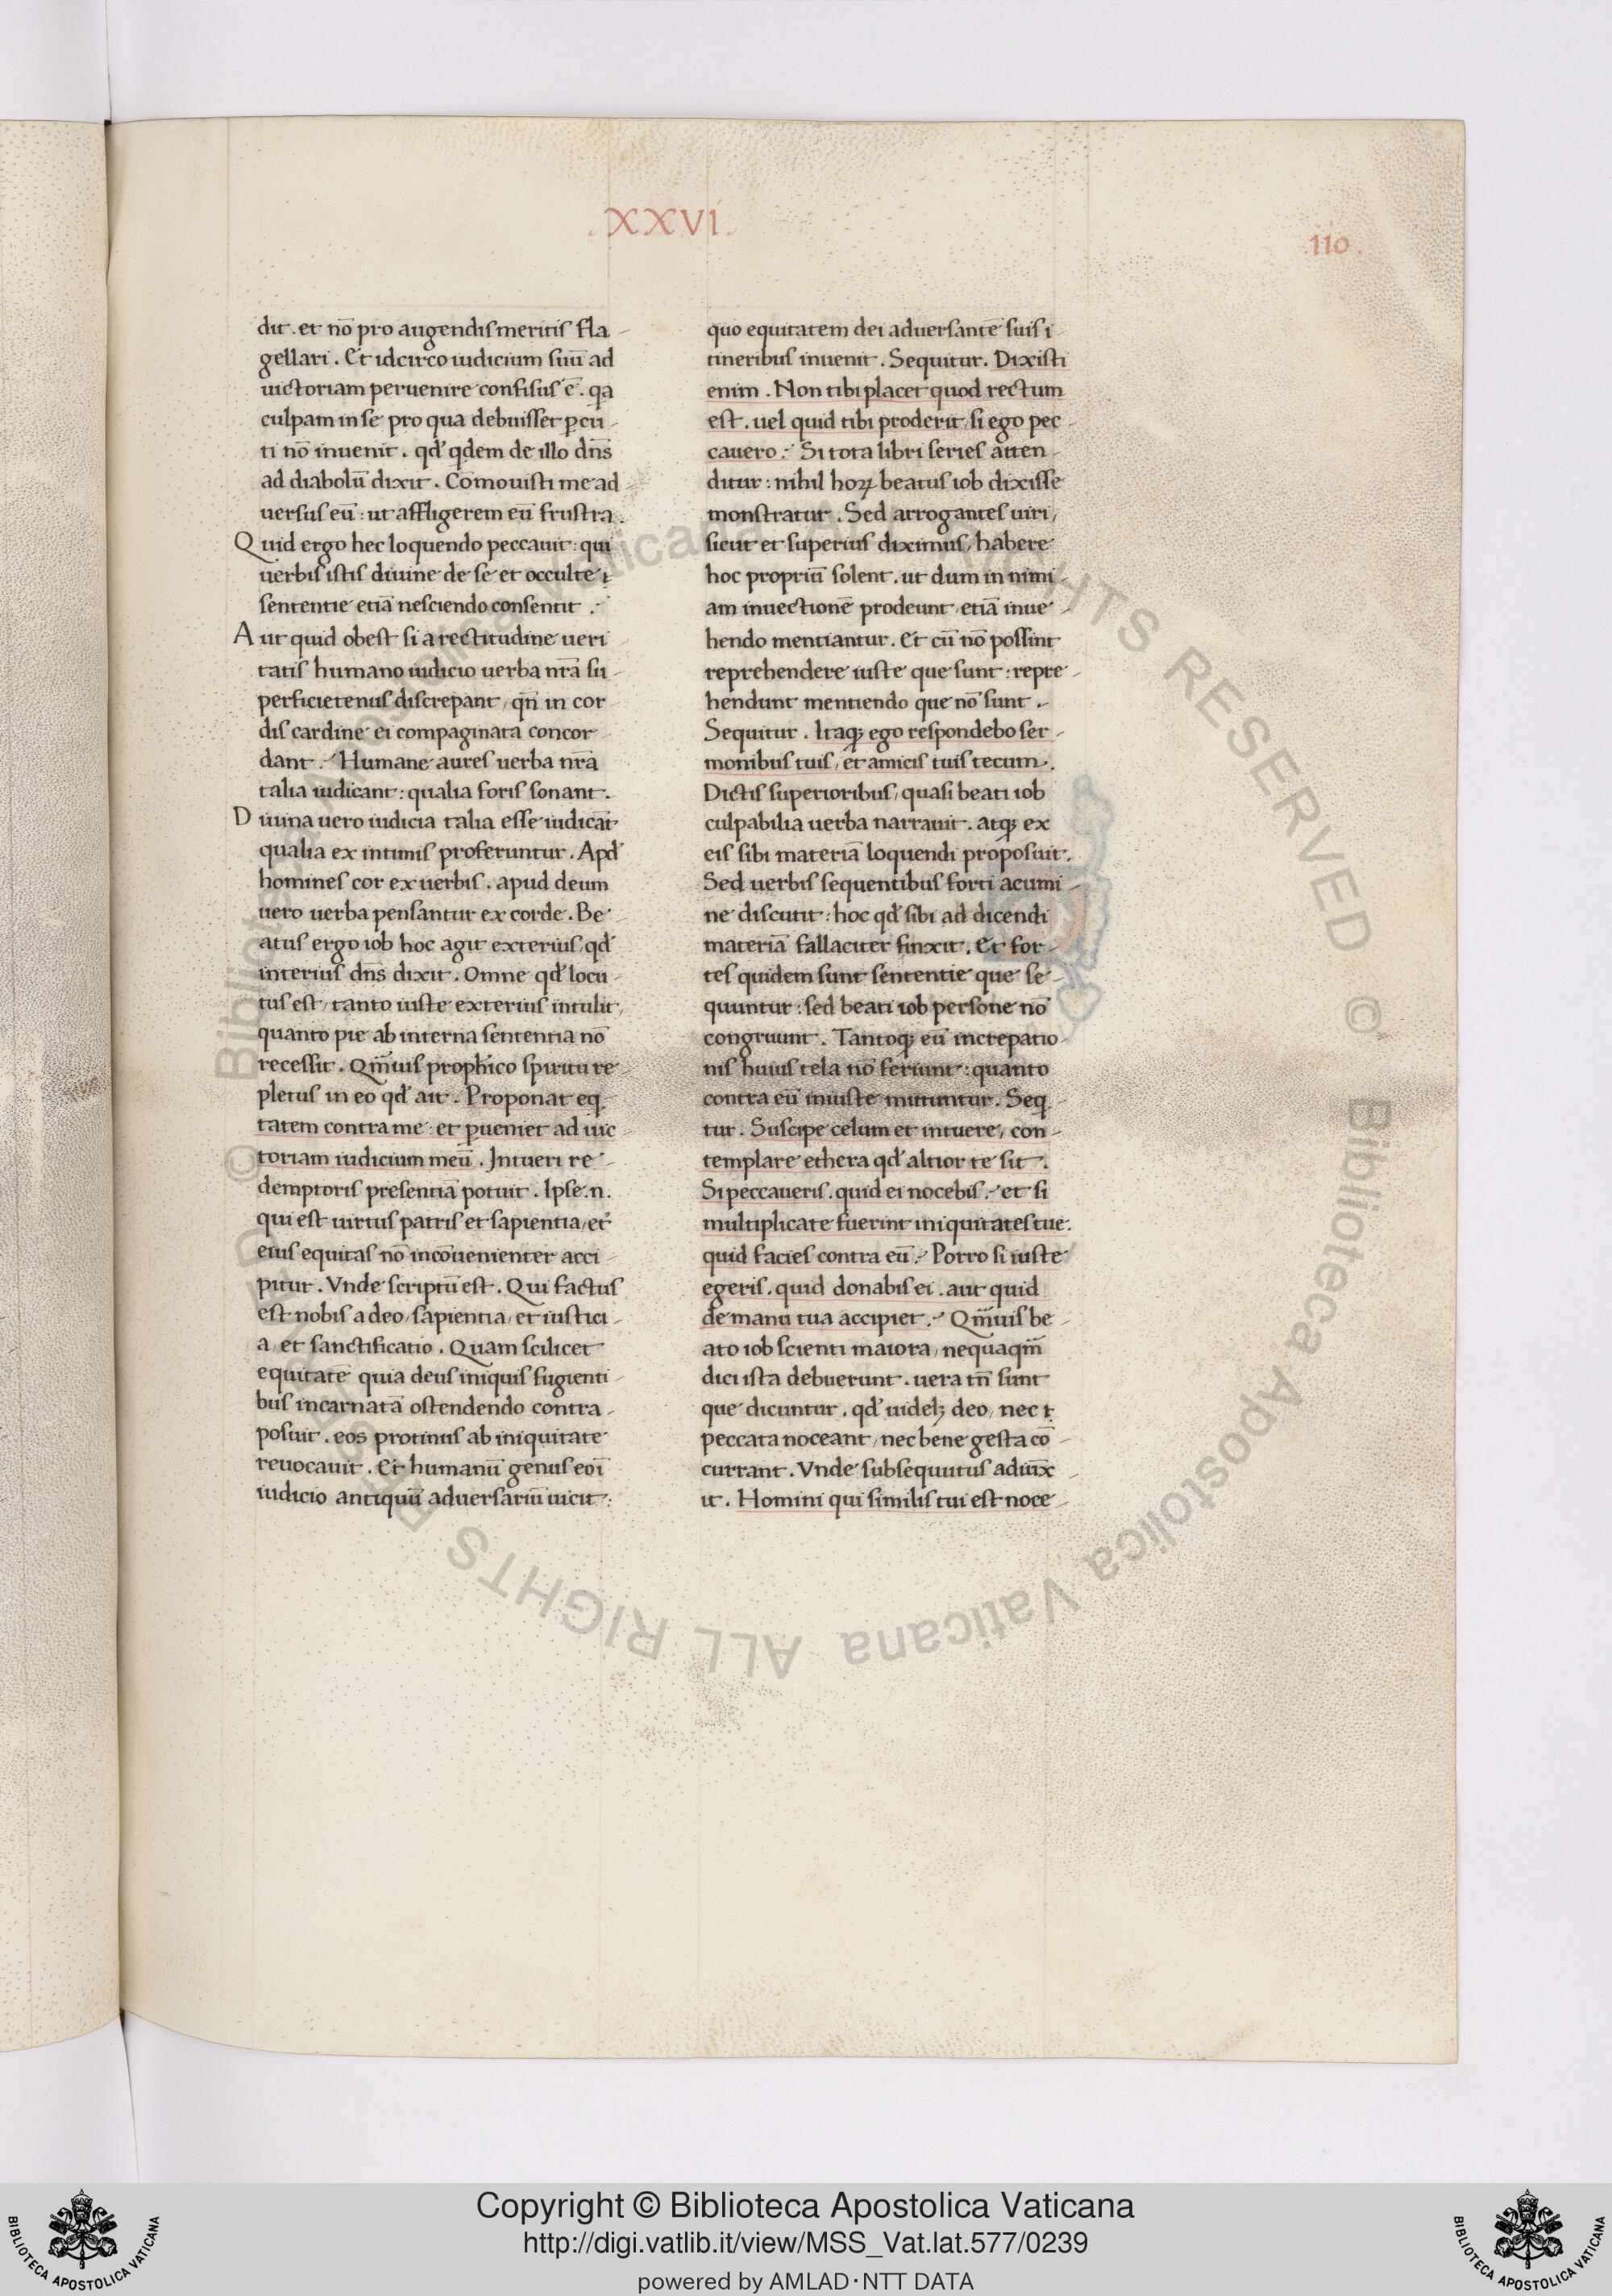 .XXVI.
110.
dit . et nō pro augendis meritis fla-
gellari . Et idcirco iudicium suū ad
uictoriam peruenire confisus ē . qa
culpam in se pro qua debuisset ꝑcu-
ti nō inuenit . qđ qdem de illo dn̄s
ad diabolū dixit . Cōmouisti me ad-
uersus eū : ut affligerem eū frustra .
Quid ergo hec loquendo peccauit : qui
uerbis istis diuine de se et occulte
sententie etiā nesciendo consentit .
Aut quid obest si a rectitudine ueri-
tatis humano iudicio uerba nr̄a su-
perficietenus discrepant , qn̄ in cor-
dis cardine ei compaginata concor-
dant . Humane aures uerba nr̄a
talia iudicant : qualia foris sonant .
Diuina uero iudicia talia esse iudicāt
qualia ex intimis proferuntur . Apđ
homines cor ex uerbis . apud deum
uero uerba pensantur ex corde . Be-
atus ergo iob hoc agit exterius , qđ
interius dn̄s dixit . Omne qđ locu-
tus est , tanto iuste exterius intulit ,
quanto pie ab interna sententia nō
recessit . Qm̄uis prophico spiritu re-
pletus in eo qđ ait . Proponat eq-
tatem contra me : et ꝑueniet ad uic-
toriam iudicium meū . Intueri re-
demptoris presentiā potuit . Ipse .n.
qui est uirtus patris et sapientia , et
eius equitas nō incōuenienter acci-
pitur . Vnde scriptū est . Qui factus
est nobis a deo , sapientia , et iustici-
a , et sanctificatio . Quam scilicet
equitatē quia deus iniquis fugienti-
bus incarnatā ostendendo contra-
posuit . eos protinus ab iniquitate
reuocauit . Et humanū genus eoī
iudicio antiquū aduersariū uicit :
quo equitatem dei aduersantē suis i-
tineribus inuenit . Sequitur . Dixisti
enim . Non tibi placet quod rectum
est . uel quid tibi proderit , si ego pec-
cauero . Si tota libri series atten-
ditur : nihil hoꝝ beatus iob dixisse
monstratur . Sed arrogantes uiri ,
sicut et superius diximus , habere
hoc propriū solent . ut dum in nimi-
am inuectionē prodeunt , etiā inue-
hendo mentiantur . Et cū nō possint
reprehendere iuste que sunt : repre-
hendunt mentiendo que nō sunt .
Sequitur . Itaqꝫ ego respondebo ser-
monibus tuis , et amicis tuis tecum .
Dictis superioribus , quasi beati iob
culpabilia uerba narrauit . atqꝫ ex
eis sibi materiā loquendi proposuit .
Sed uerbis sequentibus forti acumi-
ne discutit : hoc qđ sibi ad dicendi
materiā fallaciter finxit . Et for-
tes quidem sunt sententie que se-
quuntur : sed beati iob persone nō
congruunt . Tantoqꝫ eū increpatio-
nis huius tela nō feriunt : quanto
contra eū iniuste mittuntur . Seq-
tur . Suscipe celum et intuere , con-
templare ethera qđ altior te sit .
Si peccaueris . quid ei nocebis . et si
multiplicate fuerint iniquitates tue .
quid facies contra eū . Porro si iuste
egeris . quid donabis ei . aut quid
de manu tua accipiet . Qm̄uis be-
ato iob scienti maiora , nequaqm̄
dici ista debuerunt . uera tn̄ sunt
que dicuntur . qđ uidelꝫ deo , nec
peccata noceant , nec bene gesta cō-
currant . Vnde subsequutus adiūx-
it . Homini qui similis tui est noce-
© Biblioteca Apostolica Vaticana ALL RIGHTS RESERVED © Biblioteca Apostolica Vaticana ALL RIGHTS RESERVED
Copyright © Biblioteca Apostolica Vaticana
http://digi.vatlib.it/view/MSS_Vat.lat.577/0239
powered by AMLAD·NTT DATA
BIBLIOTECA APOSTOLICA VATICANA
BIBLIOTECA APOSTOLICA VATICANA